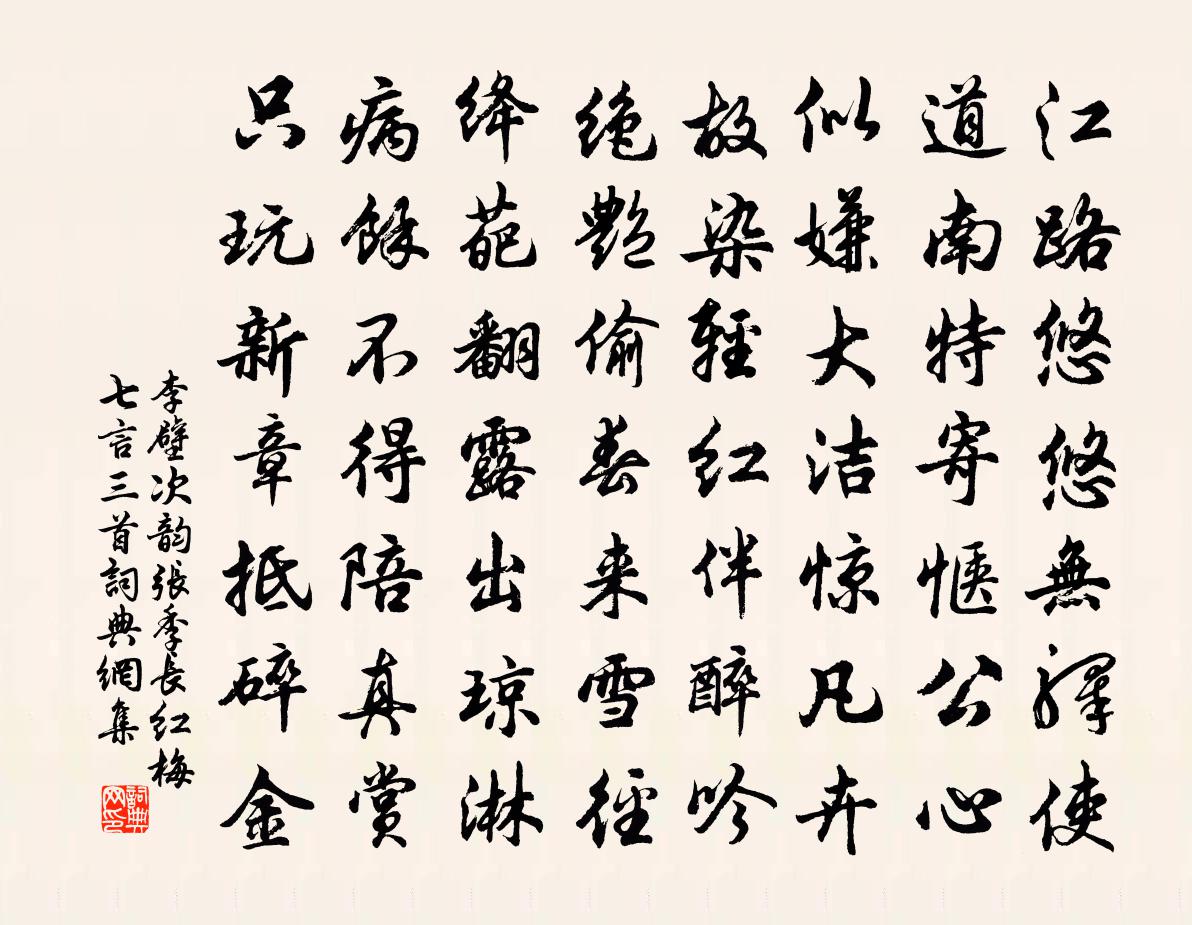 江路悠悠無驛使
道南特寄愜公心
似嫌大洁惊凡卉
故染輕红伴醉吟
绝艷偷春来雪径
绛葩翻露出琼淋
病餘不得陪真赏
只玩新章抵碎金
李壁次韵張季長红梅
七言三首詞典網集
詞典网印